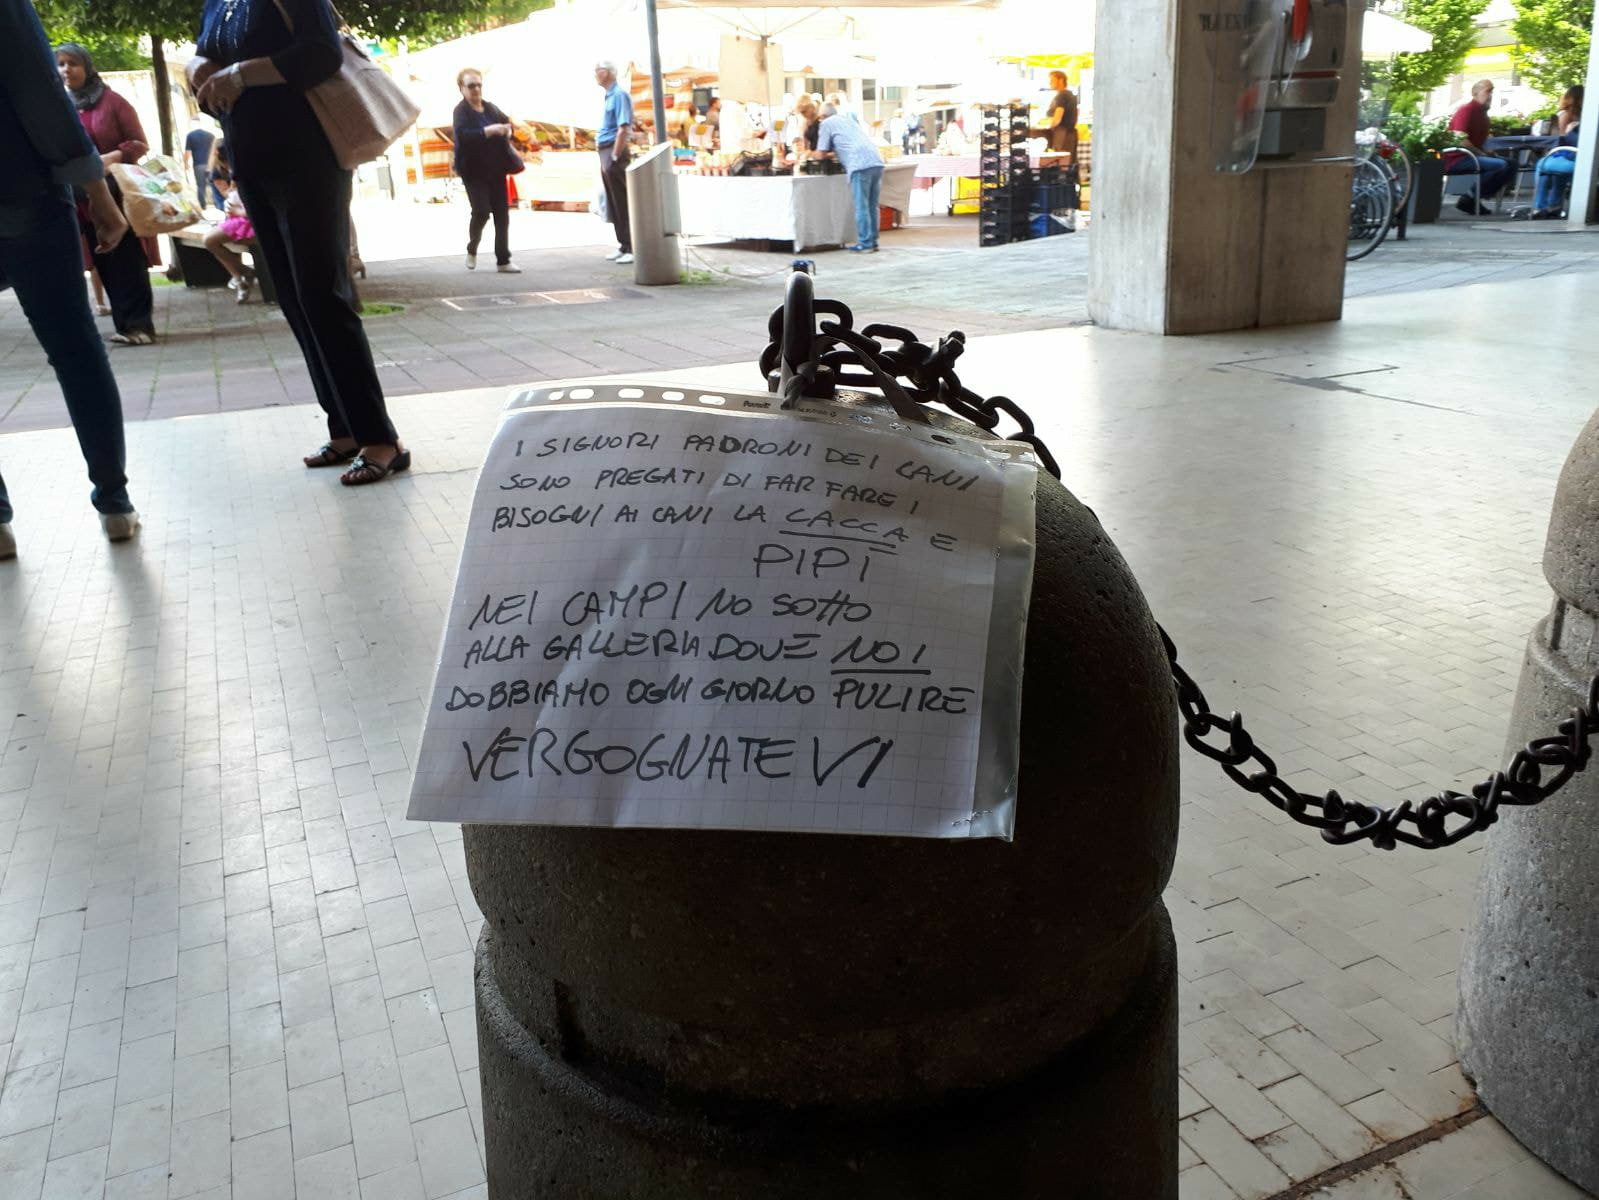 I SIGNORI PADRONI DEI CANI
SONO PREGATI DI FAR FARE I
BISOGNI AI CANI LA CACCA E
PIPÌ
NEI CAMPI NO SOTTO
ALLA GALLERIA DOVE NOI
DOBBIAMO OGNI GIORNO PULIRE
VERGOGNATEVI